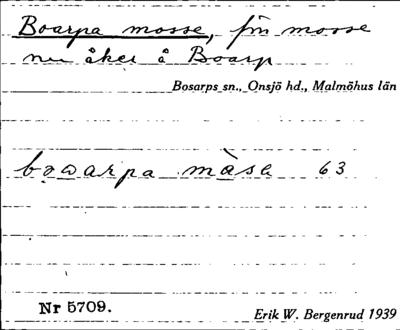 Boarpa mosse, fm mosse
nu åker å Boarp
Bosarps sn., Onsjö hd., Malmöhus län
boarpa màsa 63
Nr 5709.
Erik W. Bergenrud 1939